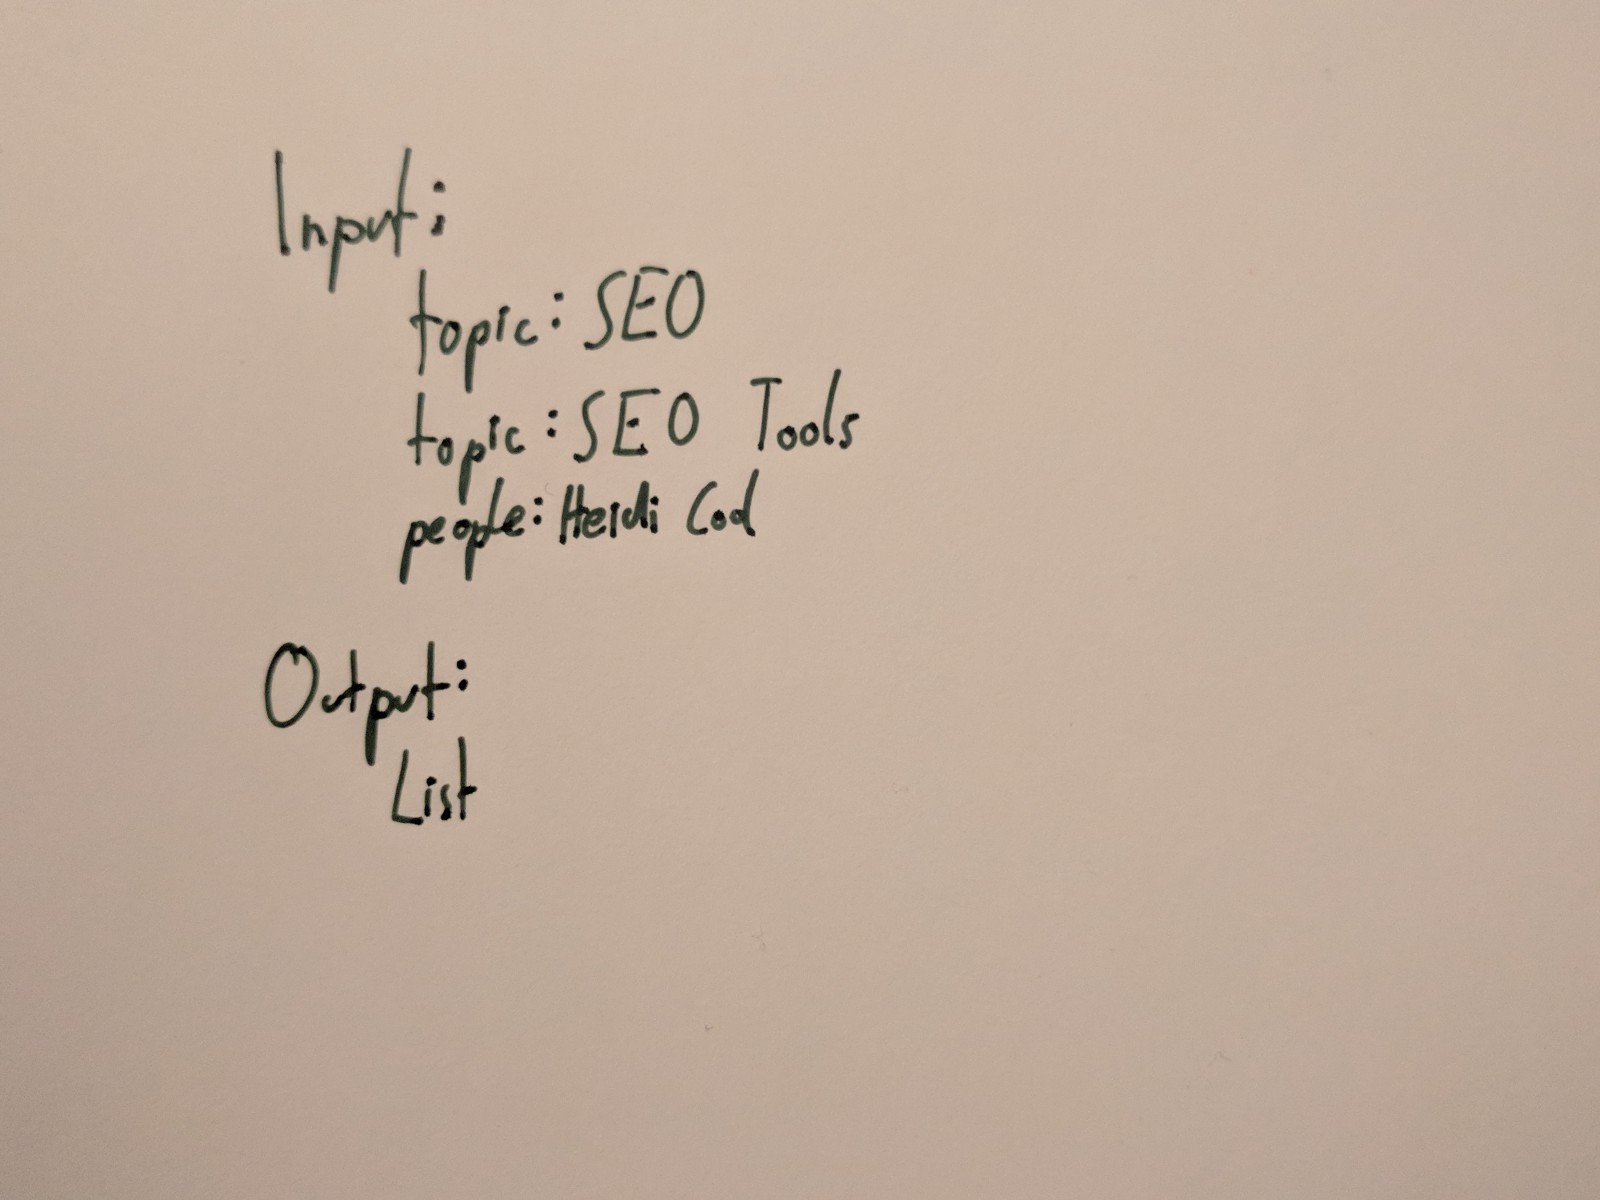 Input:
topic: SEO
topic: SEO Tools
people: Heidi Cod
Output:
List